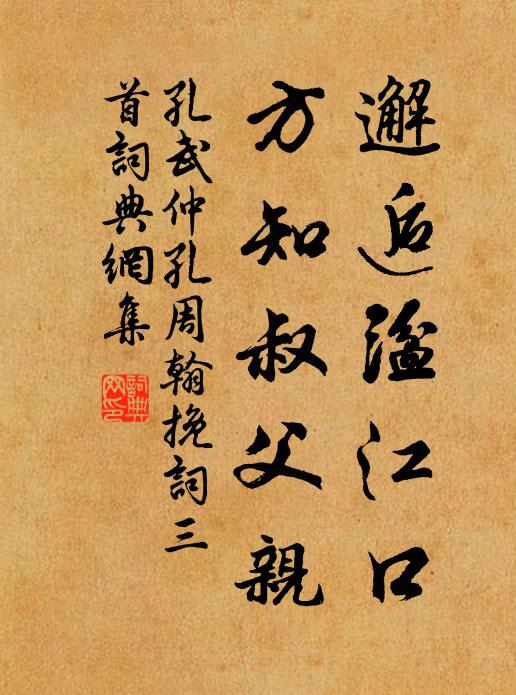 邂逅湓江口
方知叔父親
孔武仲孔周翰挽詞三
首詞典網集
詞典
网印